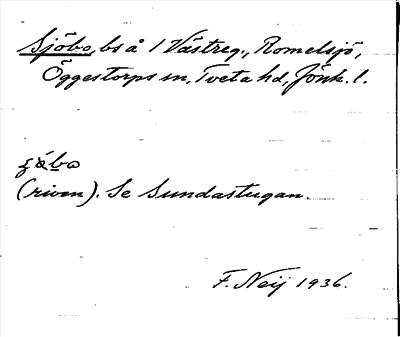 Sjöbo, bs å 1 Västreg., Romelsjö,
Öggestorps sn, Tveta hd, Jönk. l.
(riven). Se Sundastugan.
F. Neij 1936.